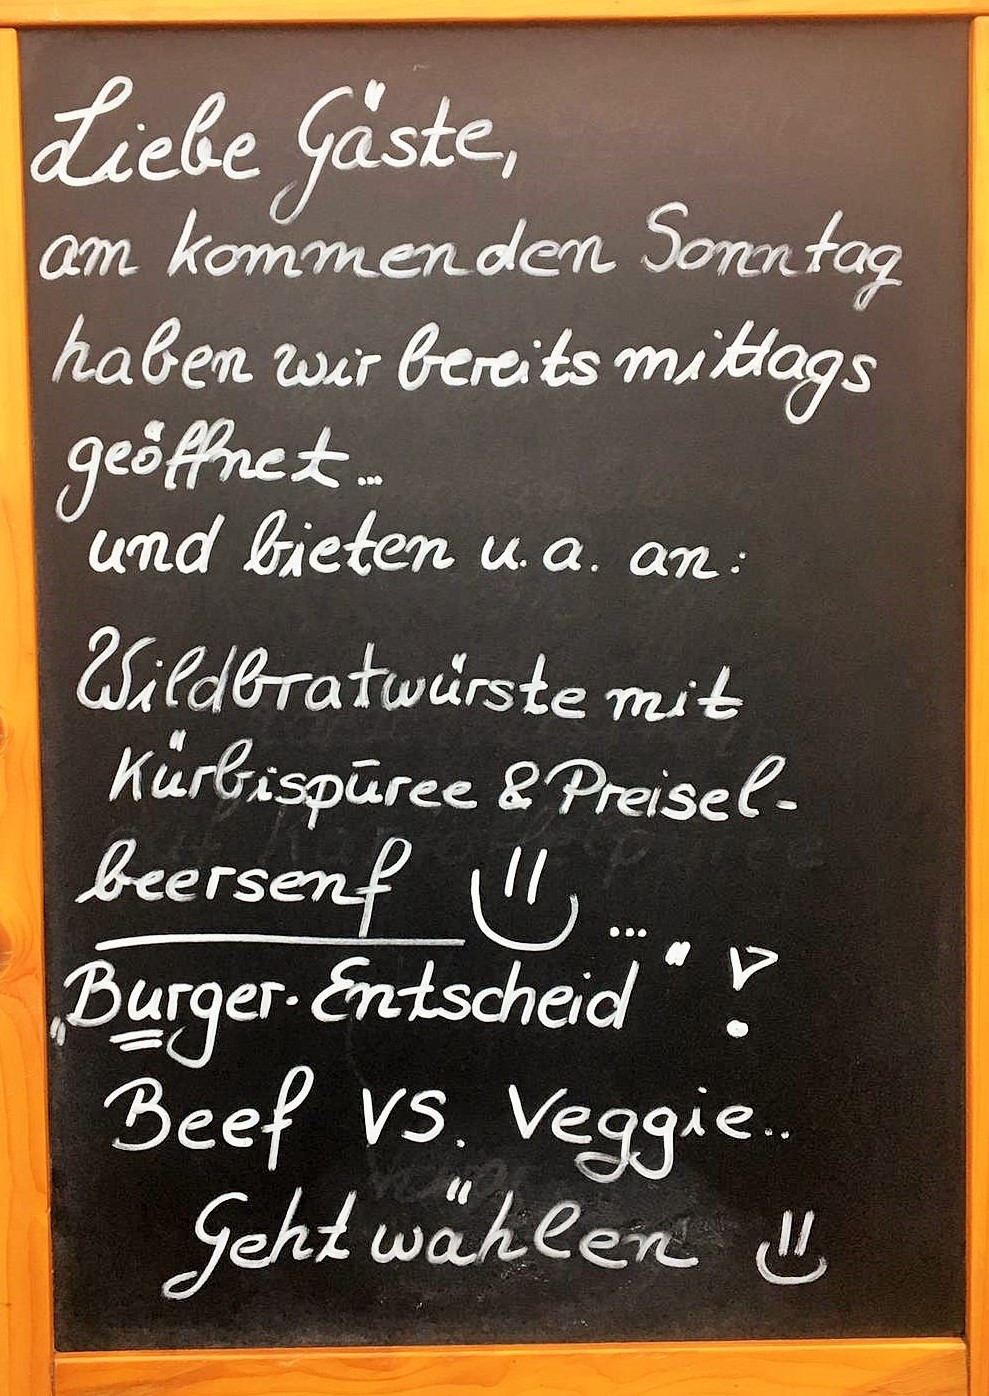 Liebe Gäste,
am kommenden Sonntag
haben wir bereits mittags
geöffnet...
und bieten u.a. an:
Wildbratwürste mit
Kürbispüree & Preisel-
beersenf ...
„Burger-Entscheid" !
Beef VS. Veggie..
Geht wählen